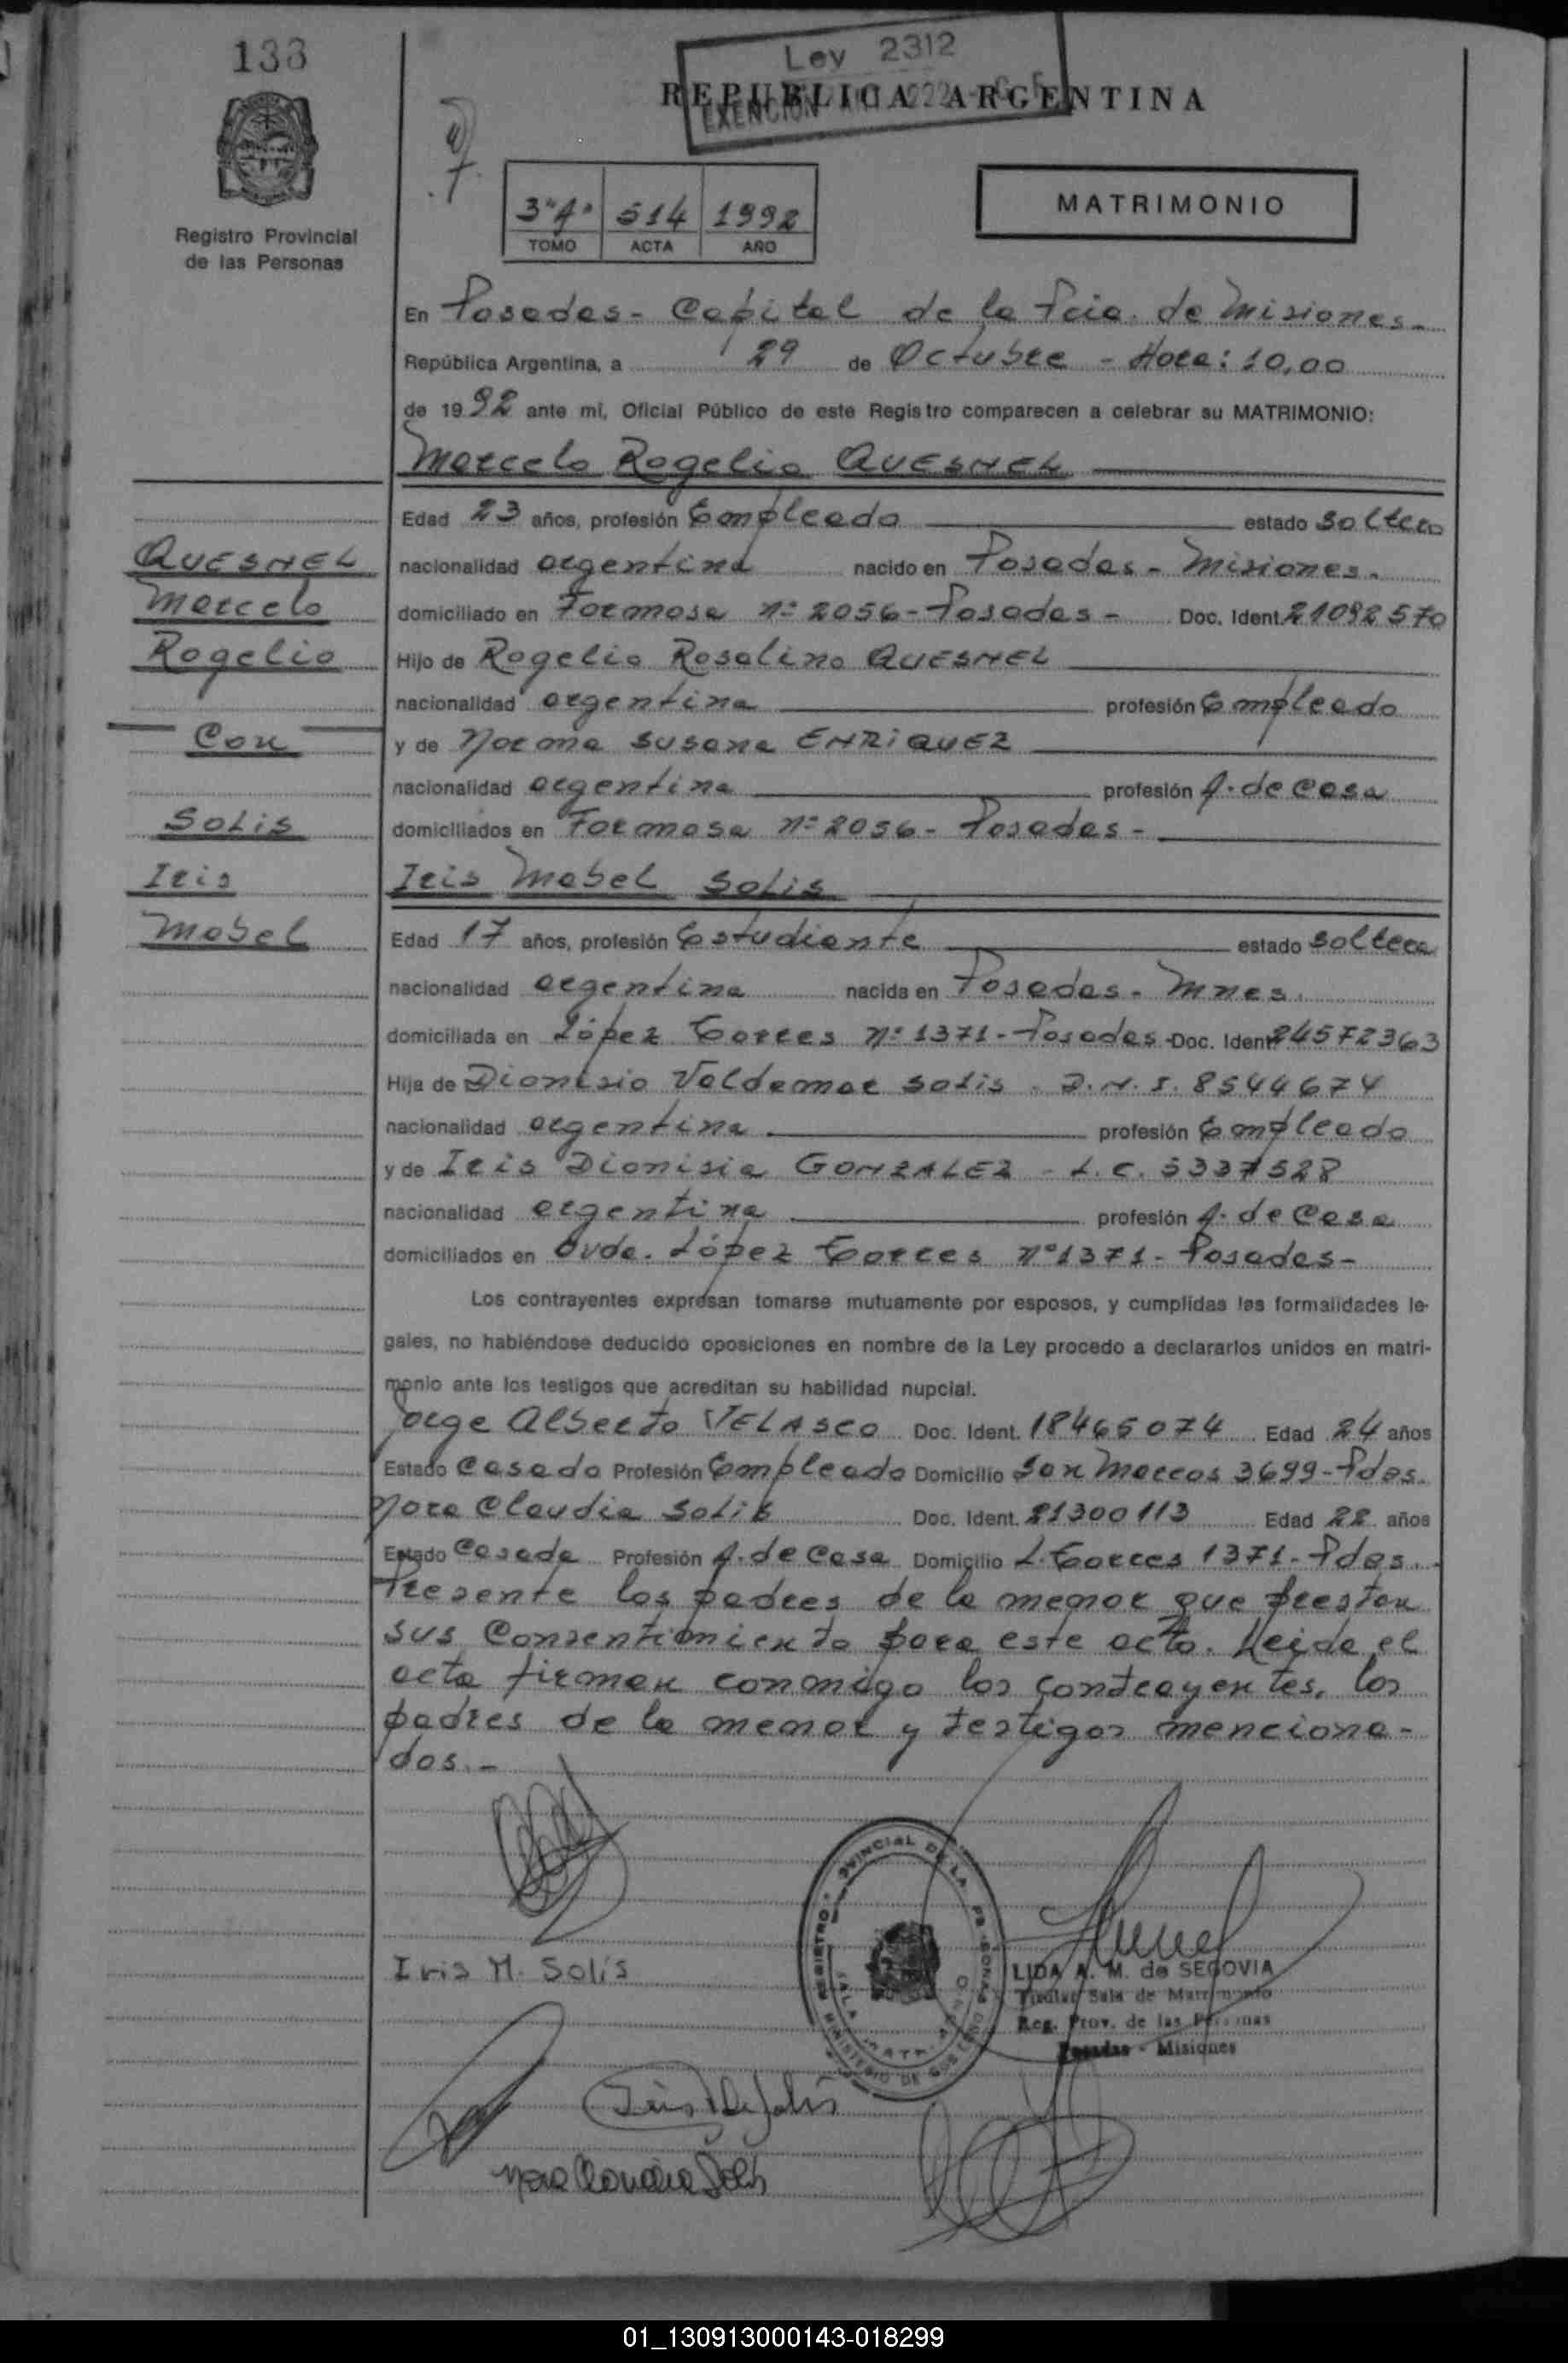 133
Ley 2312
REPUBLICA ARGENTINA
EXENCION
Registro Provincial
de las Personas
3"A" 514 1992
TOMO ACTA AÑO
MATRIMONIO
En Posadas - Capital de la Pcia. de Misiones -
República Argentina, a 29 de Octubre - Hora: 10,00
de 1992 ante mí, Oficial Público de este Registro comparecen a celebrar su MATRIMONIO:
Marcelo Rogelio QUESNEL
Edad 23 años, profesión Empleado estado soltero
nacionalidad argentina nacido en Posadas - Misiones.
domiciliado en Formosa nº 2056 - Posadas - Doc. Ident. 21092570
Hijo de Rogelio Rosalino QUESNEL
nacionalidad argentina profesión Empleado
y de Norma Susana ENRIQUEZ
nacionalidad argentina profesión A. de Casa
domiciliados en Formosa nº 2056 - Posadas -
Iris Mabel Solis
Edad 17 años, profesión Estudiante estado soltera
nacionalidad argentina nacida en Posadas - Mnes.
domiciliada en López Torres nº 1371 - Posadas - Doc. Ident. 24572363
Hija de Dionisio Valdemar Solis - D.N.I. 8544674
nacionalidad argentina profesión Empleado
y de Iris Dionisia GONZALEZ - L.C. 5337528
nacionalidad argentina profesión A. de Casa
domiciliados en Avda. López Torres nº 1371 - Posadas -
Los contrayentes expresan tomarse mutuamente por esposos, y cumplidas las formalidades le-
gales, no habiéndose deducido oposiciones en nombre de la Ley procedo a declararlos unidos en matri-
monio ante los testigos que acreditan su habilidad nupcial.
Jorge Alberto VELASCO Doc. Ident. 18465074 Edad 24 años
Estado Casado Profesión Empleado Domicilio San Marcos 3699 - Pdas.
Nora Claudia Solis Doc. Ident. 21300113 Edad 22 años
Estado Casada Profesión A. de Casa Domicilio L. Torres 1371 - Pdas.
Presente los padres de la menor que prestan
sus Consentimiento para este acto. Leida el
acta firman conmigo los contrayentes, los
padres de la menor y testigos menciona-
dos. -
QUESNEL
Marcelo
Rogelio
Con
Solis
Iris
Mabel
Iris M. Solís
LIDA A. M. de SEGOVIA
Titular Sala de Matrimonio
Reg. Prov. de las Personas
Posadas - Misiones
REGISTRO PROVINCIAL DE LAS PERSONAS
MINISTERIO DE GOBIERNO
Nora Claudia Solis
01_130913000143-018299